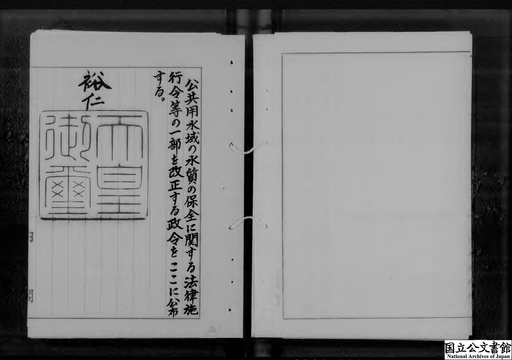 公共用水域の水質の保全に関する法律施
行令等の一部を改正する政令をここに公布
する。
裕仁
天皇
御璽
国立公文書館
National Archives of Japan